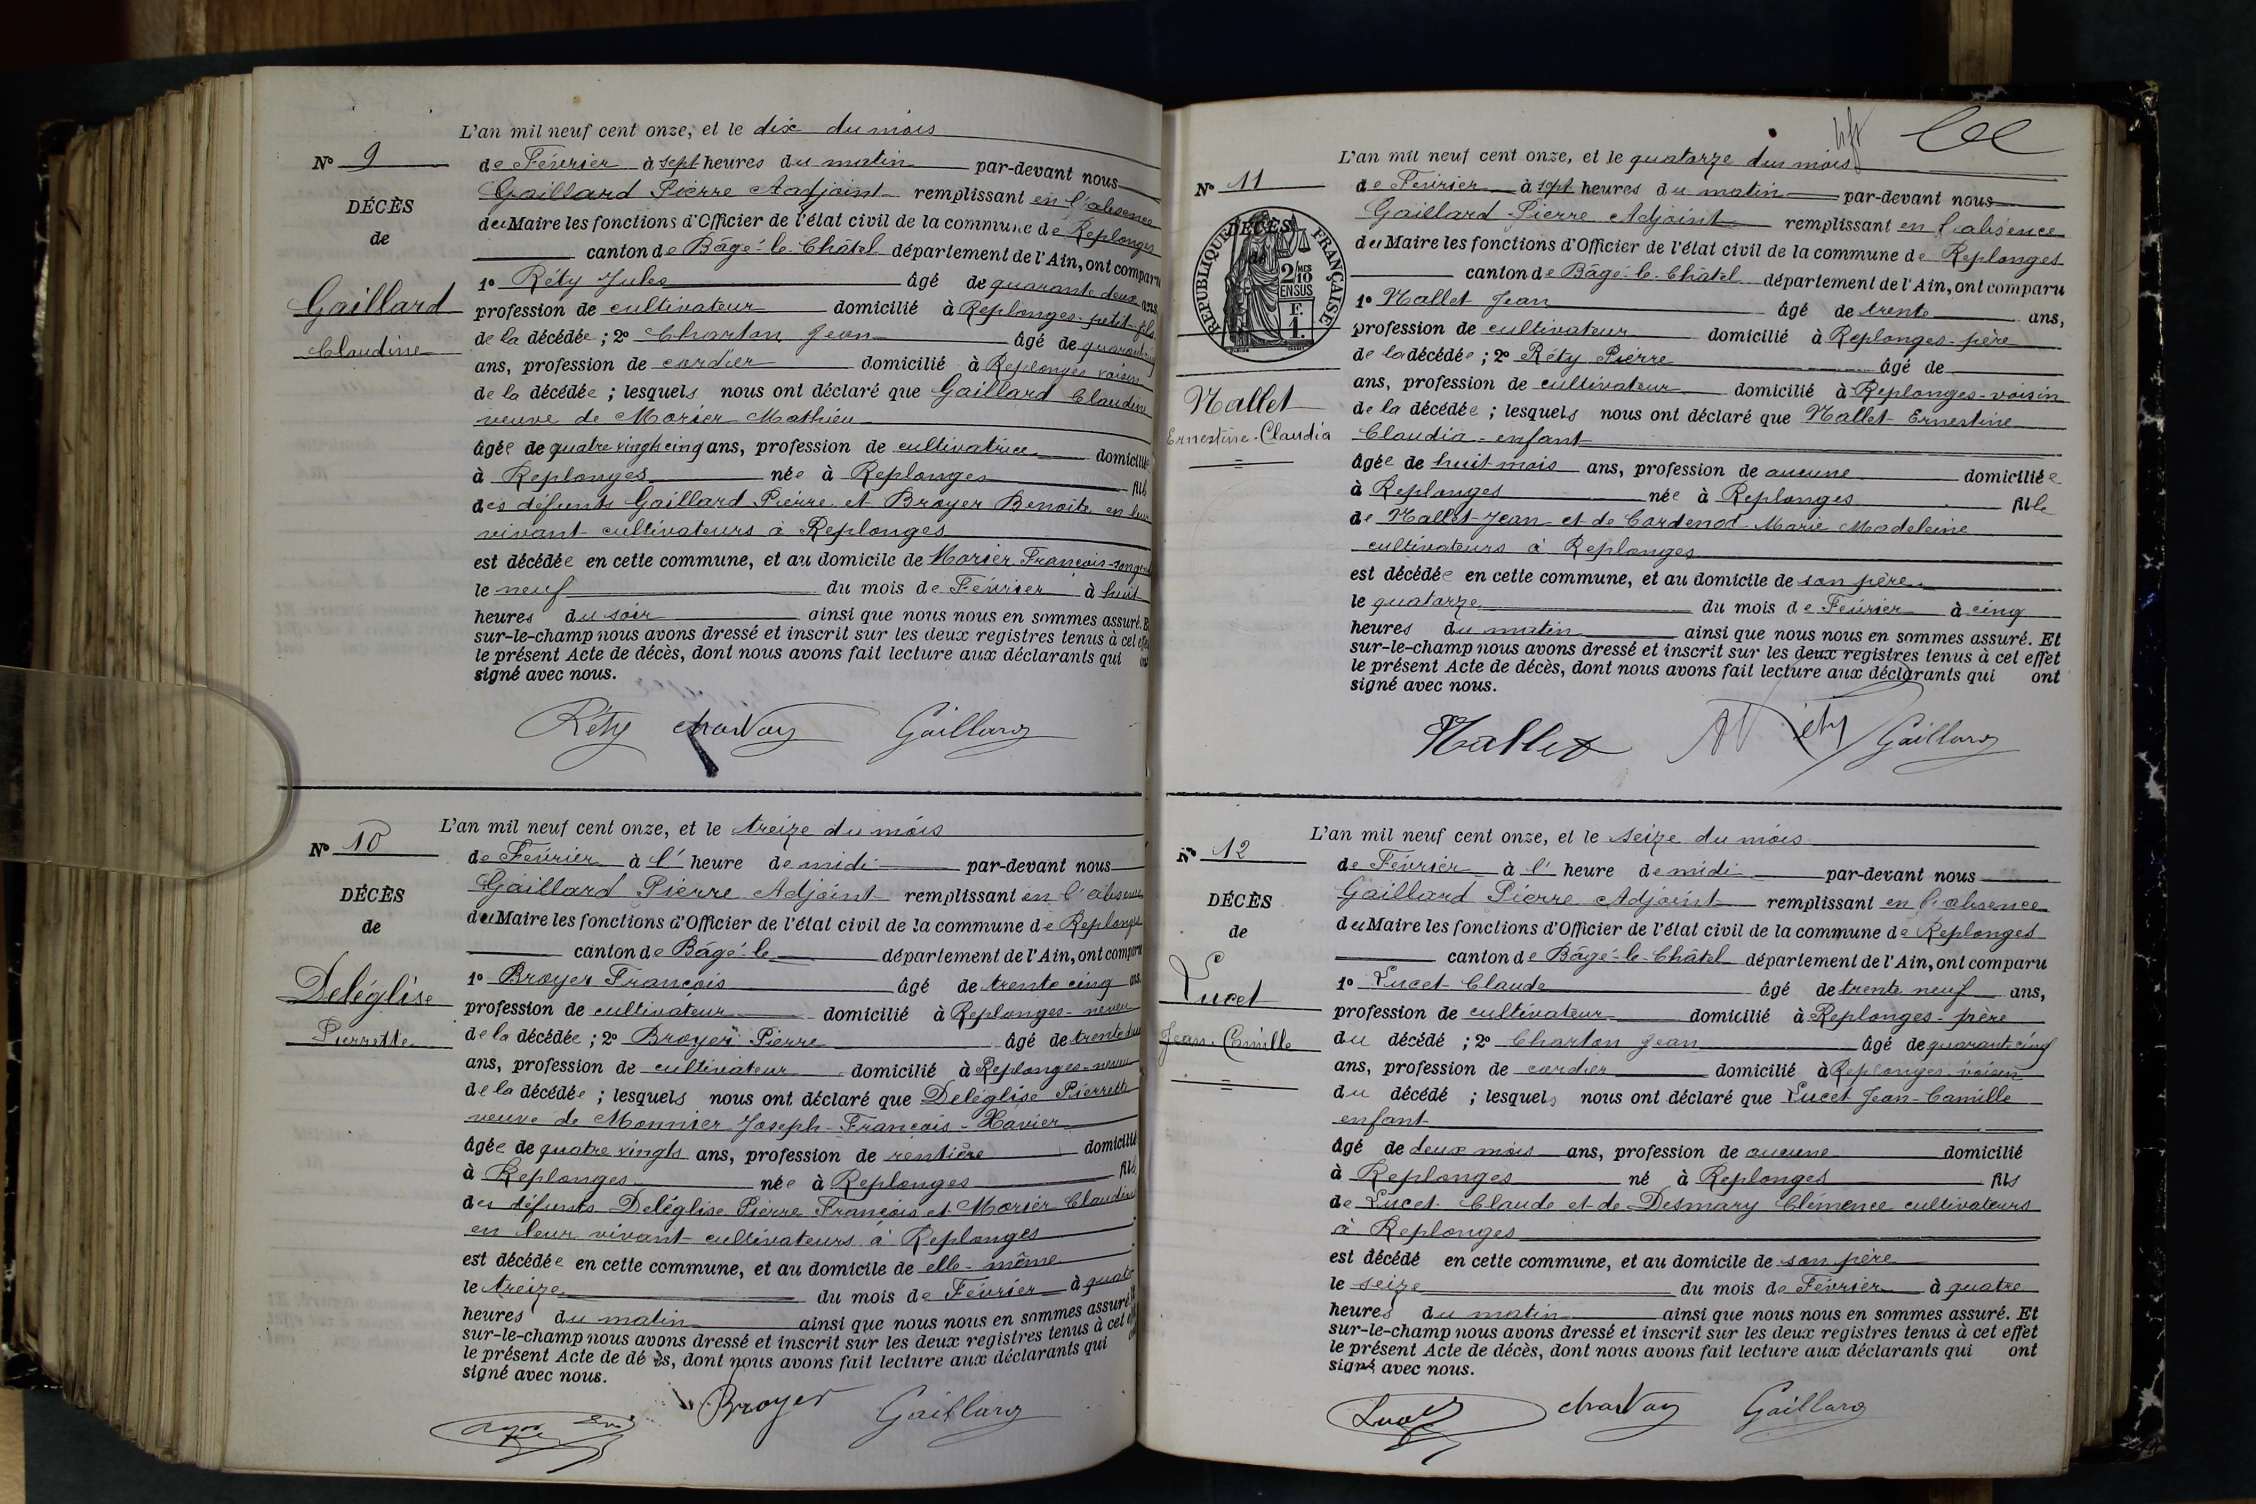 L'an mil neuf cent onze, et le dix du mois
N° 9
de Février à sept heures du matin par-devant nous
Gaillard Pierre Adjoint remplissant en l'absence
DÉCÈS
de
du Maire les fonctions d'Officier de l'état civil de la commune de Replonges
canton de Bâgé-le-Châtel département de l'Ain, ont comparu
Gaillard
Claudine
1° Réty Jules âgé de quarante deux ans,
profession de cultivateur domicilié à Replonges petit-fils
de la décédée ; 2° Charton Jean âgé de
ans, profession de cordier domicilié à Replonges voisin
de la décédée ; lesquels nous ont déclaré que Gaillard Claudine
veuve de Morier Mathieu
âgée de quatre vingt cinq ans, profession de cultivatrice domiciliée
à Replonges née à Replonges fille
des défunts Gaillard Pierre et Broyer Benoite en leur
vivant cultivateurs à Replonges
est décédée en cette commune, et au domicile de Morier François
le neuf du mois de Février à huit
heures du soir ainsi que nous nous en sommes assuré. Et
sur-le-champ nous avons dressé et inscrit sur les deux registres tenus à cet effet
le présent Acte de décès, dont nous avons fait lecture aux déclarants qui ont
signé avec nous.
Réty Charton Gaillard
L'an mil neuf cent onze, et le treize du mois
N° 10
de Février à l' heure de midi par-devant nous
Gaillard Pierre Adjoint remplissant en l'absence
DÉCÈS
de
du Maire les fonctions d'Officier de l'état civil de la commune de Replonges
canton de Bâgé-le département de l'Ain, ont comparu
Deléglise
Pierrette
1° Broyer François âgé de trente cinq ans,
profession de cultivateur domicilié à Replonges - neveu
de la décédée ; 2° Broyer Pierre âgé de
ans, profession de cultivateur domicilié à Replonges - neveu
de la décédée ; lesquels nous ont déclaré que Deléglise Pierrette
veuve de Monnier Joseph - François - Xavier
âgée de quatre vingts ans, profession de rentière domiciliée
à Replonges née à Replonges fille
des défunts Deléglise Pierre François et Morier Claudine
en leur vivant cultivateurs à Replonges
est décédée en cette commune, et au domicile de elle-même
le treize du mois de Février à quatre
heures du matin ainsi que nous nous en sommes assuré. Et
sur-le-champ nous avons dressé et inscrit sur les deux registres tenus à cet effet
le présent Acte de dé ès, dont nous avons fait lecture aux déclarants qui ont
signé avec nous.
Broyer Gaillard
L'an mil neuf cent onze, et le quatorze du mois
N° 11
de Février à sept heures du matin par-devant nous
Gaillard Pierre Adjoint remplissant en l'absence
DÉCÈS
de
RÉPUBLIQUE FRANÇAISE
2/10 MES
EN SUS
F.
1
du Maire les fonctions d'Officier de l'état civil de la commune de Replonges
canton de Bâgé-le-Châtel département de l'Ain, ont comparu
Nallet
Ernestine-Claudia
1° Nallet Jean âgé de trente ans,
profession de cultivateur domicilié à Replonges - père
de la décédée ; 2° Réty Pierre âgé de
ans, profession de cultivateur domicilié à Replonges - voisin
de la décédée ; lesquels nous ont déclaré que Nallet Ernestine
Claudia - enfant
âgée de huit mois ans, profession de aucune domiciliée
à Replonges née à Replonges fille
de Nallet Jean et de Cardenot Marie Madeleine
cultivateurs à Replonges
est décédée en cette commune, et au domicile de son père
le quatorze du mois de Février à cinq
heures du matin ainsi que nous nous en sommes assuré. Et
sur-le-champ nous avons dressé et inscrit sur les deux registres tenus à cet effet
le présent Acte de décès, dont nous avons fait lecture aux déclarants qui ont
signé avec nous.
Nallet Réty Gaillard
L'an mil neuf cent onze, et le seize du mois
N° 12
de Février à l' heure de midi par-devant nous
Gaillard Pierre Adjoint remplissant en l'absence
DÉCÈS
de
du Maire les fonctions d'Officier de l'état civil de la commune de Replonges
canton de Bâgé-le-Châtel département de l'Ain, ont comparu
Lucet
Jean-Camille
1° Lucet Claude âgé de trente neuf ans,
profession de cultivateur domicilié à Replonges - père
du décédé ; 2° Charton Jean âgé de quarante cinq
ans, profession de cordier domicilié à Replonges voisin
du décédé ; lesquels nous ont déclaré que Lucet Jean-Camille
enfant
âgé de deux mois ans, profession de aucune domicilié
à Replonges né à Replonges fils
de Lucet Claude et de Desmary Clémence cultivateurs
à Replonges
est décédé en cette commune, et au domicile de son père
le seize du mois de Février à quatre
heures du matin ainsi que nous nous en sommes assuré. Et
sur-le-champ nous avons dressé et inscrit sur les deux registres tenus à cet effet
le présent Acte de décès, dont nous avons fait lecture aux déclarants qui ont
signé avec nous.
Lucet Charton Gaillard